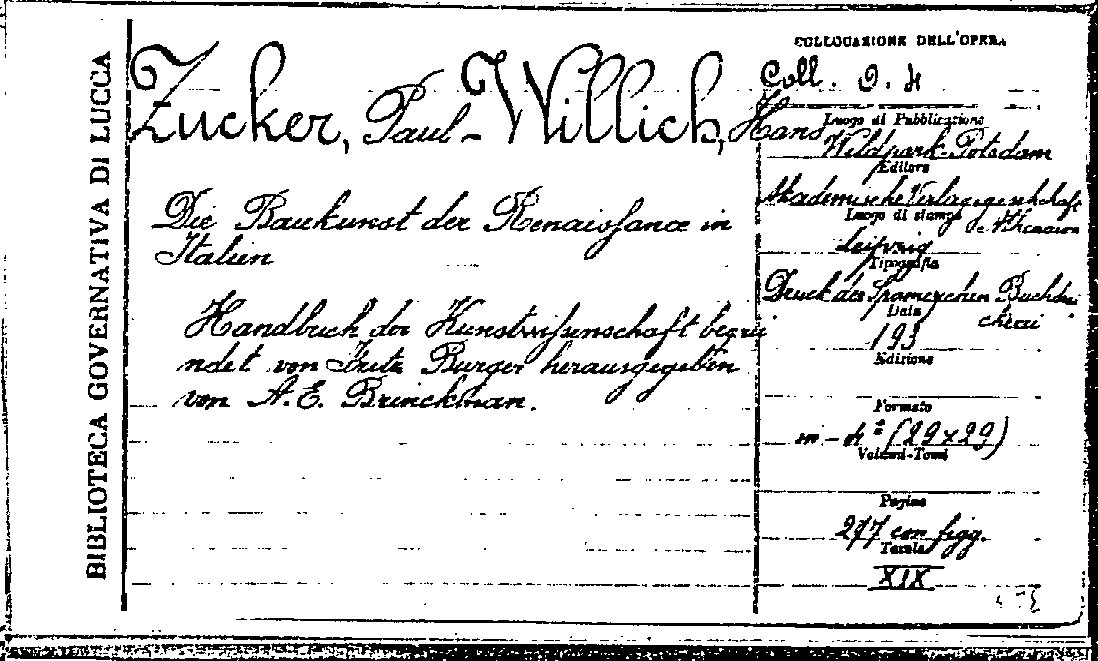 BIBLIOTECA GOVERNATIVA DI LUCCA
Zucker, Paul - Willich, Hans
Die Baukunst der Renaissance in
Italien
Handbuch der Kunstwissenschaft begrü
ndet von Fritz Burger herausgegeben
von A. E. Brinckman.
COLLOCAZIONE DELL'OPERA
Coll. 9. 4
Luogo di Pubblicazione
Wildpark-Potsdam
Editore
Akademische Verlagsgesellschaft
Athenaion
Luogo di stampa
Leipzig
Tipografia
Druck der Spamerschen Buchdru
ckerei
Data
193
Edizione
Formato
in - 4° (29x29)
Volumi-Tomi
Pagine
277 con figg.
Tavole
XIX